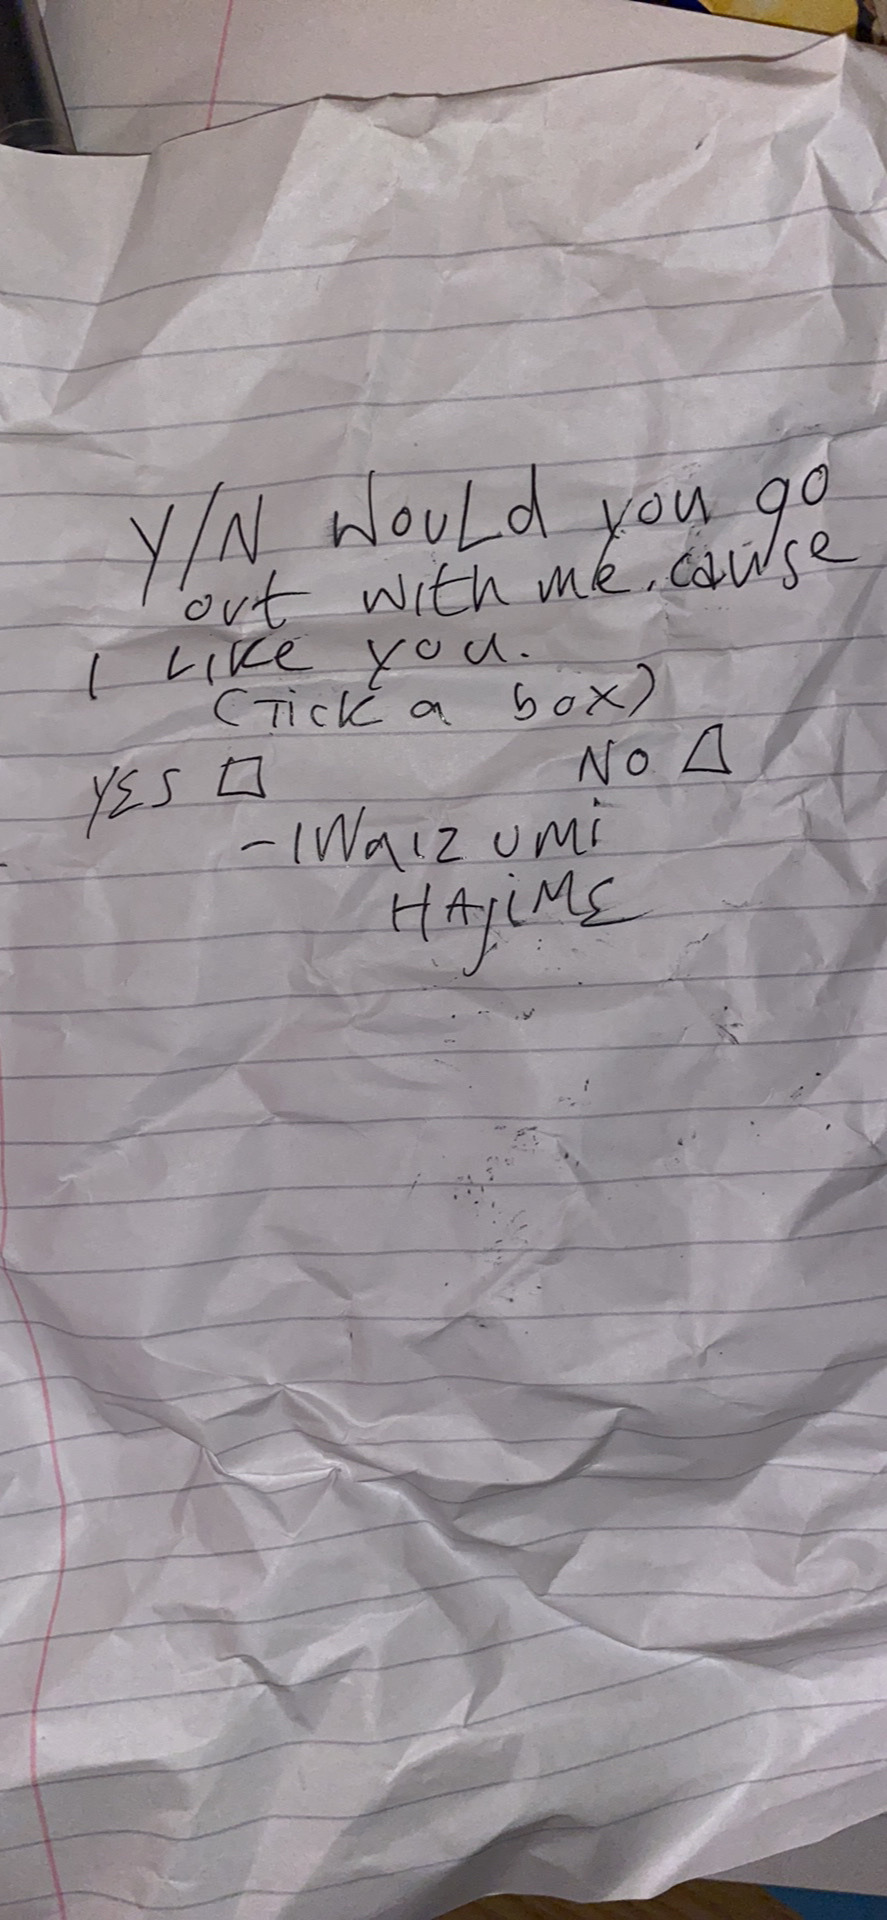 Y/N Would you go
out with me, cause
I LIKE you.
(TICK a box)
YES □ NO □
-IWaIZUMi
HAJiME